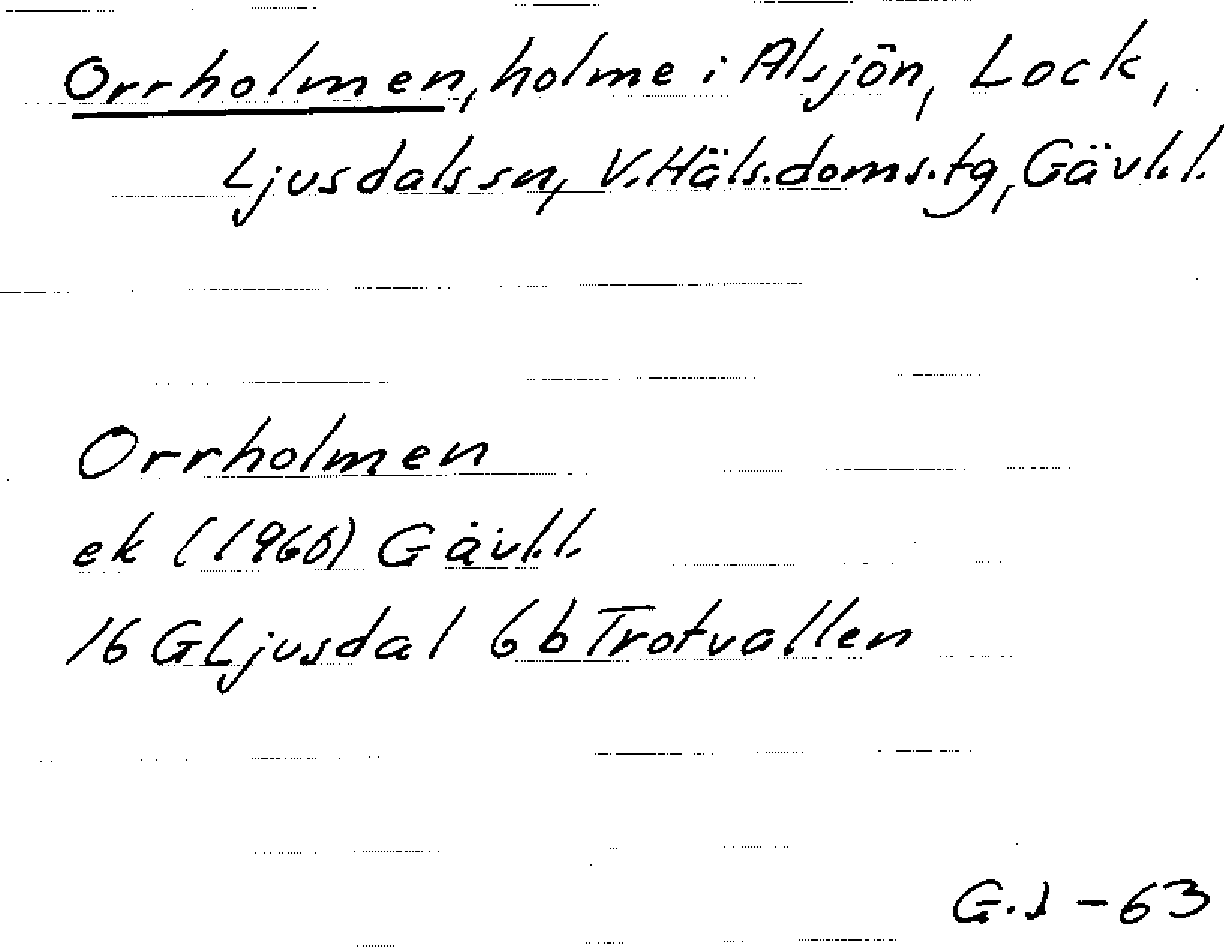 Orrholmen, holme i Alsjön, Lock,
Ljusdals sn, V.Häls.doms.tg, Gävl.l.
Orrholmen
ek (1960) Gävl.l.
16 G Ljusdal 6 b Trotvallen
G.J - 63